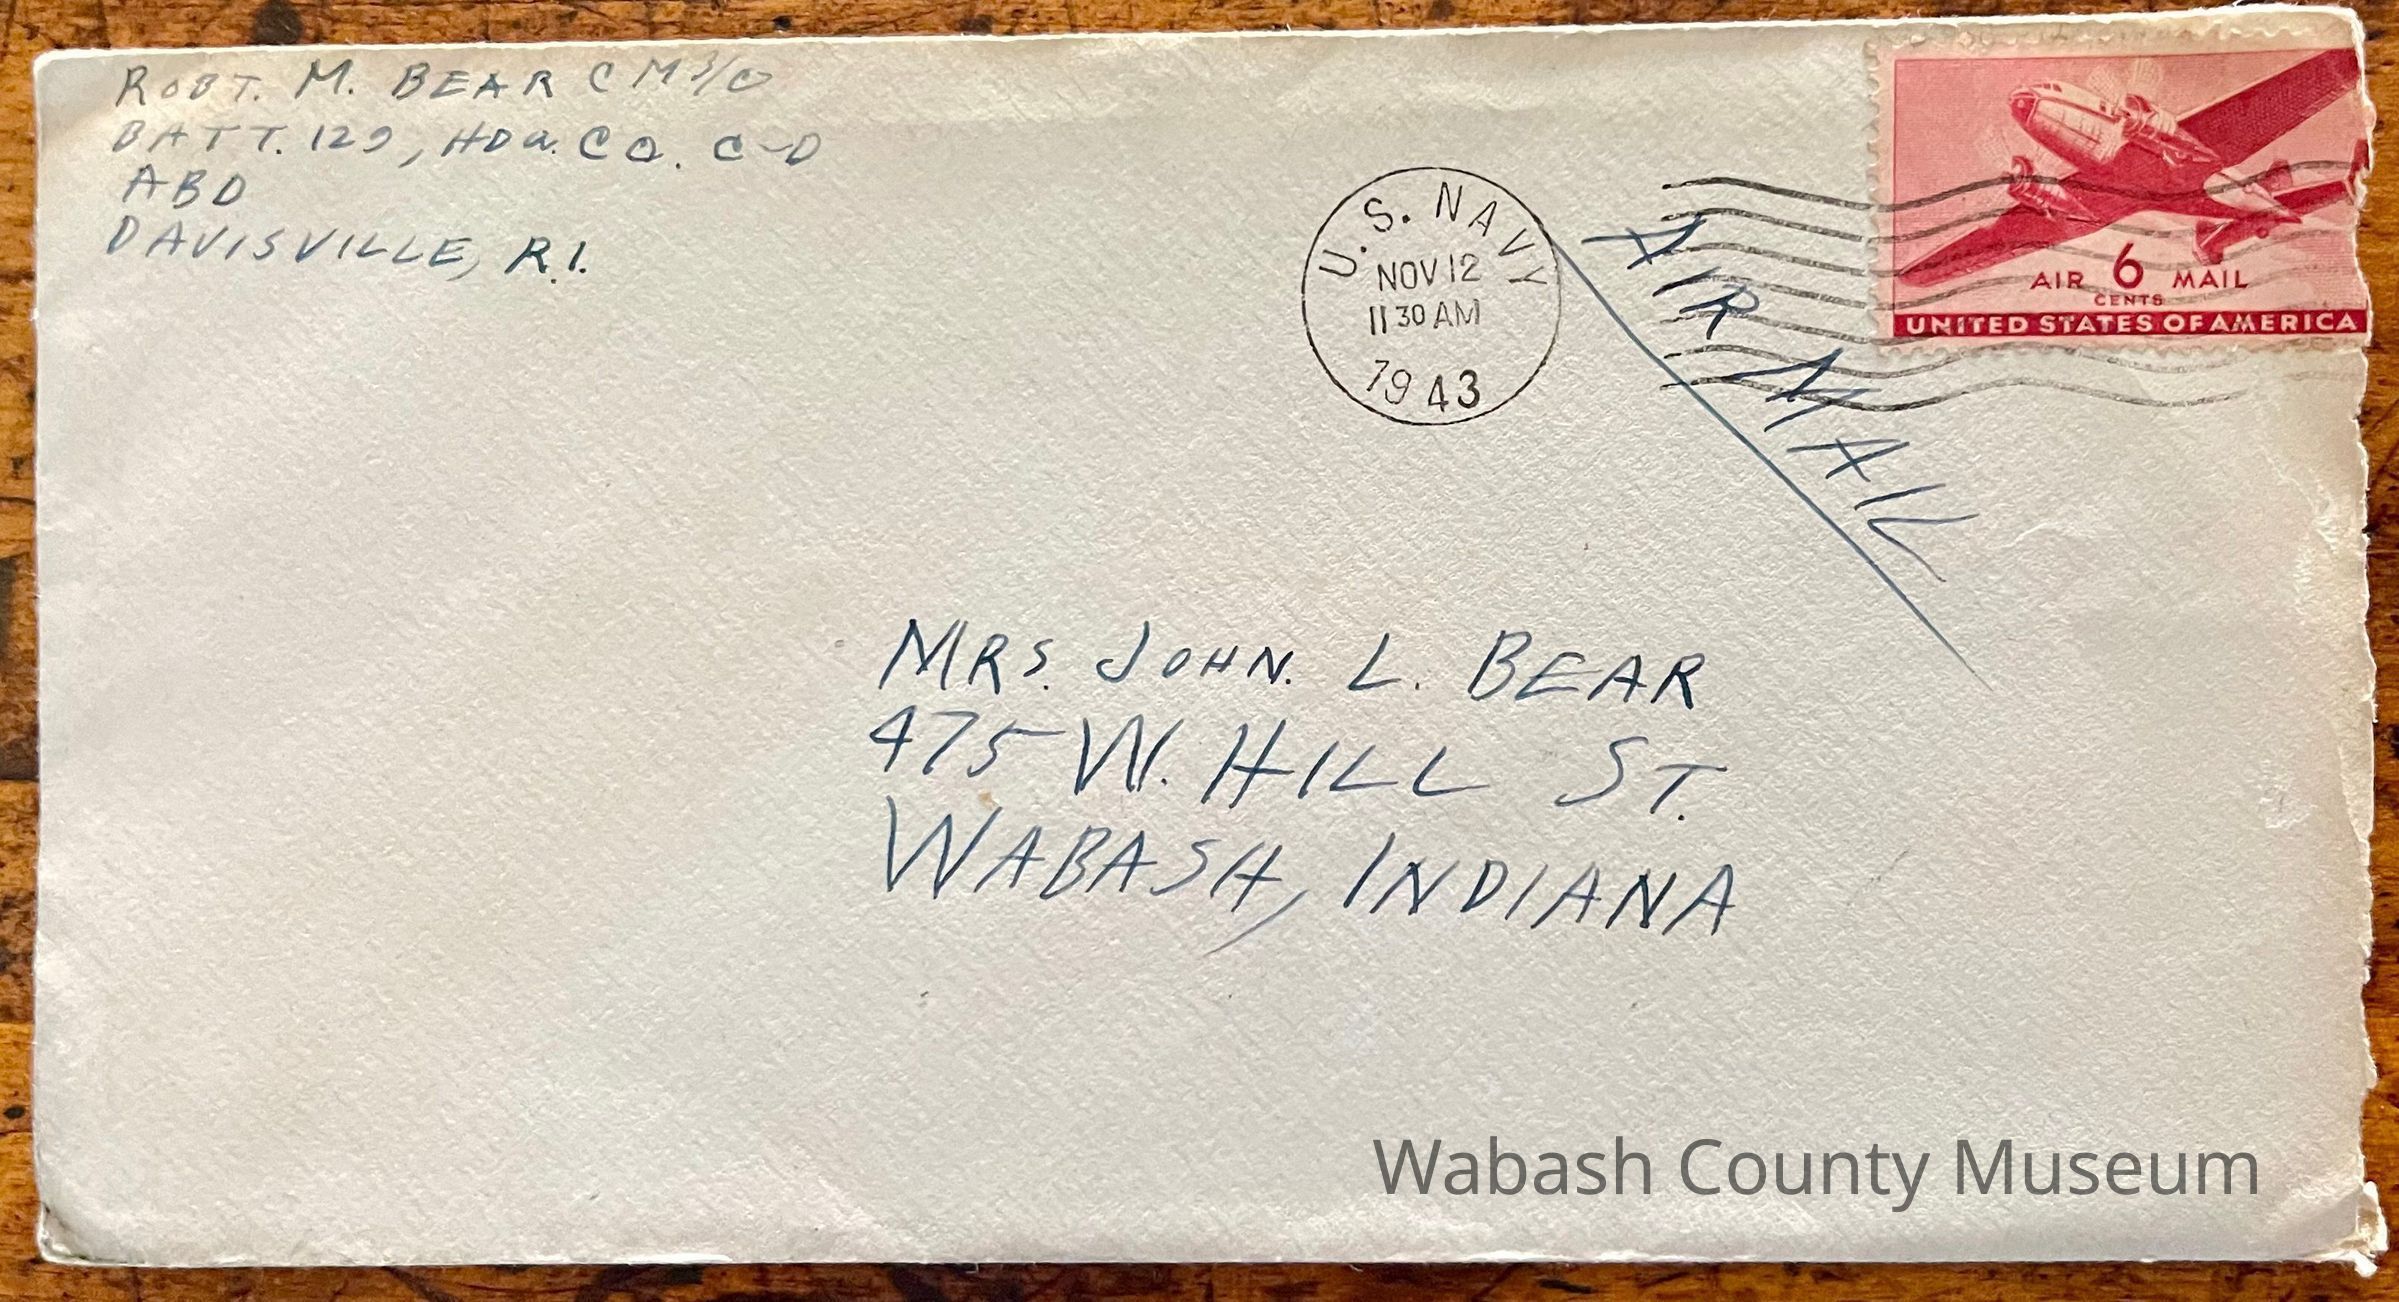 ROBT. M. BEAR CM 3/C
BATT. 129, HDQ. CO. C-D
ABD
DAVISVILLE, R.I.
U.S. NAVY
NOV 12
11 30 AM
1943
AIR MAIL
AIR 6 MAIL
CENTS
UNITED STATES OF AMERICA
MRS. JOHN. L. BEAR
475 W. HILL ST.
WABASH, INDIANA
Wabash County Museum